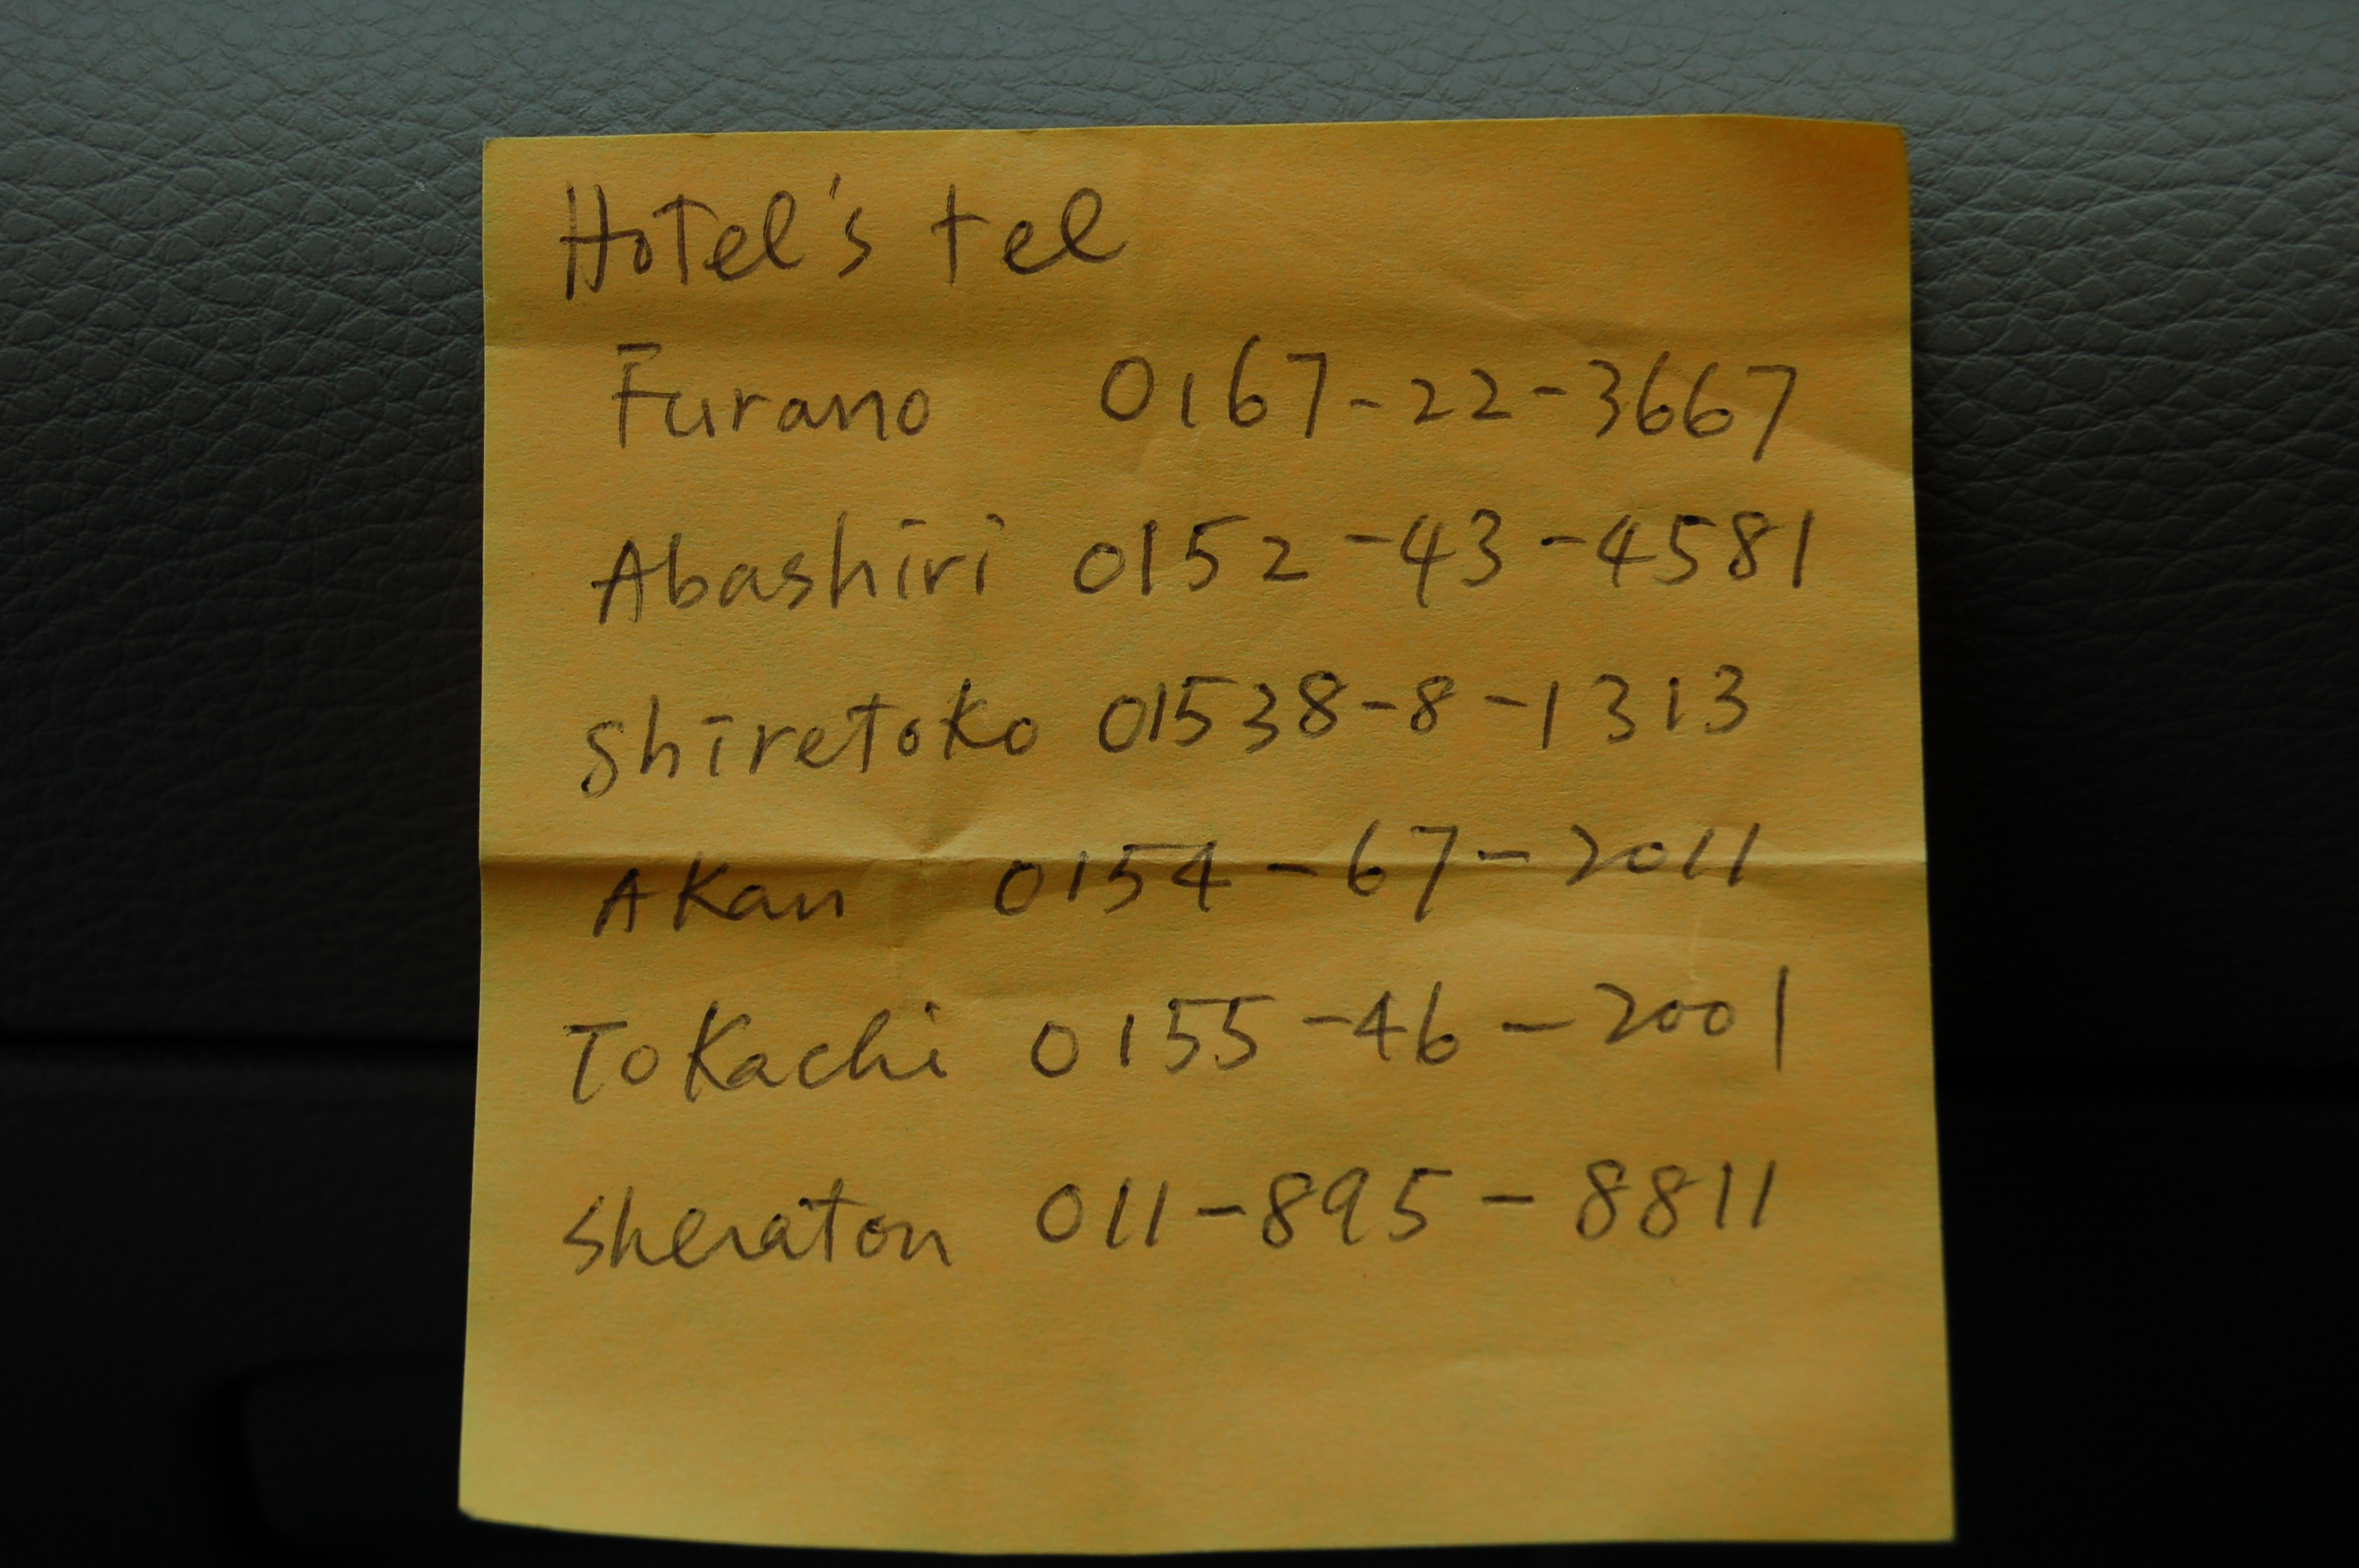 Hotel's tel
Furano 0167-22-3667
Abashiri 0152-43-4581
Shiretoko 01538-8-1313
Akan 0154-67-2011
Tokachi 0155-46-2001
Sheraton 011-895-8811